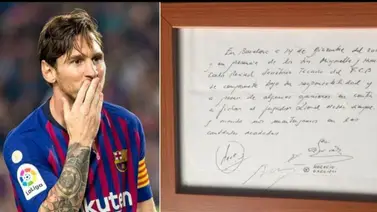 LaLiga
En Barcelona a 14 de Diciembre del
y en presencia de los Srs Minguella y
Carles Rexach Secretario Técnico del F.C.B
se compromete bajo su responsabilidad y
a pesar de algunas opiniones en contra
a fichar al jugador Lionel Messi
y cuando nos mantengamos en las
cantidades acordadas
HORACIO
GAGGIOLI